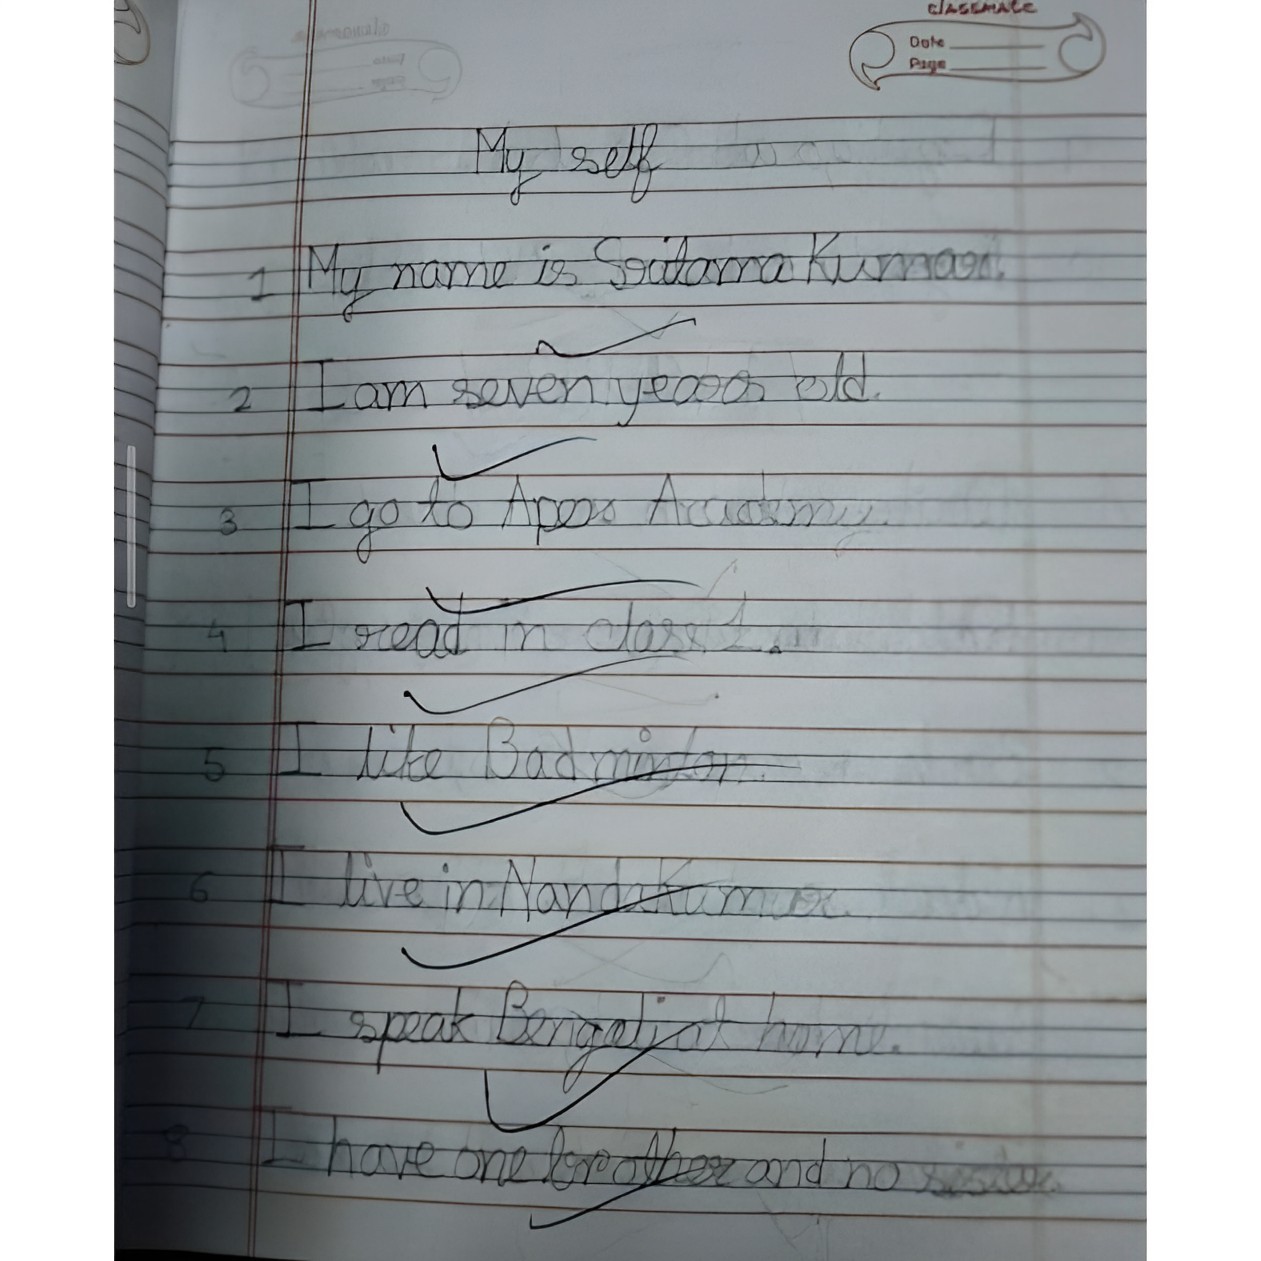 classmate
Date
Page
My self
1 My name is Sritama Kumar.
2 I am seven years old.
3 I go to Apex Academy.
4 I read in class 1.
5 I like Badminton.
6 I live in Nandakumar.
7 I speak Bengali at home.
8 I have one brother and no sister.